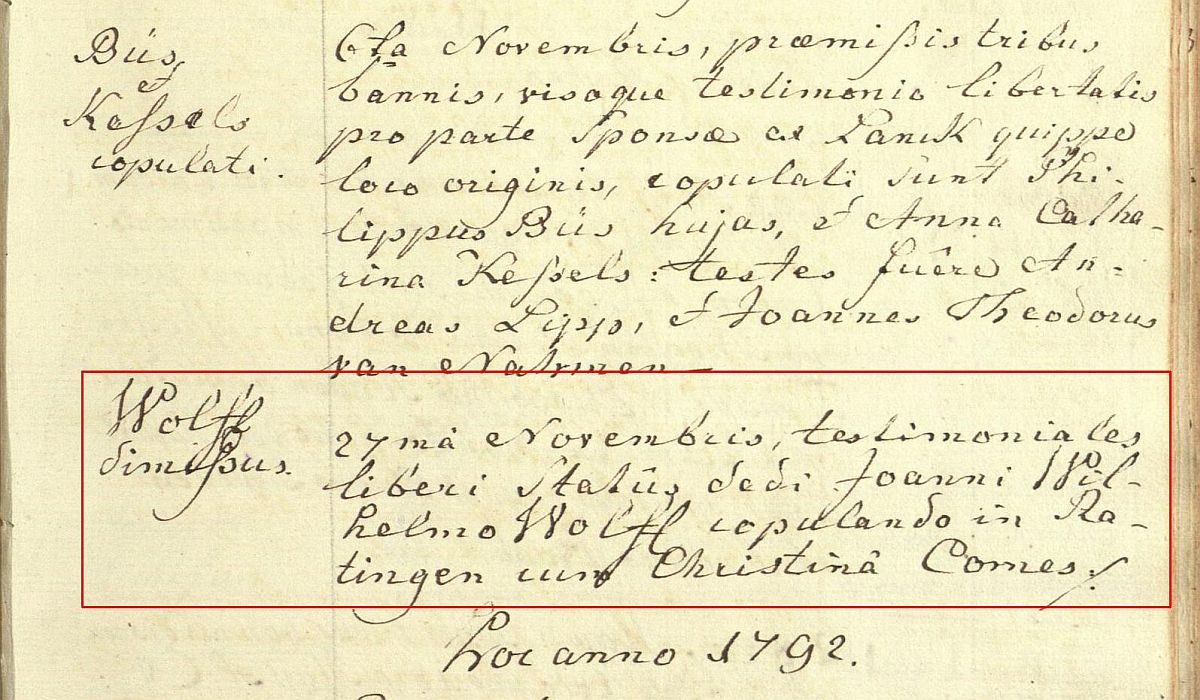 Büs,
et
Kaſsels
copulati.
6ta Novembris, præmiſsis tribus
bannis, visoque testimonio libertatis
pro parte Sponsæ ex Lanck quippe
loco originis, copulati sunt Phi-
lippus Büs hujas, & Anna Catha-
rina Keſsels: testes fuêre An-
dreas Lipp, & Joannes Theodorus
van Nahmen —
Wolff
dimiſsus.
27mâ Novembris, testimoniales
liberi Statûs dedi Joanni Wil-
helmo Wolff copulando in Ra-
tingen cum Christinâ Comes./
hoc anno 1792.